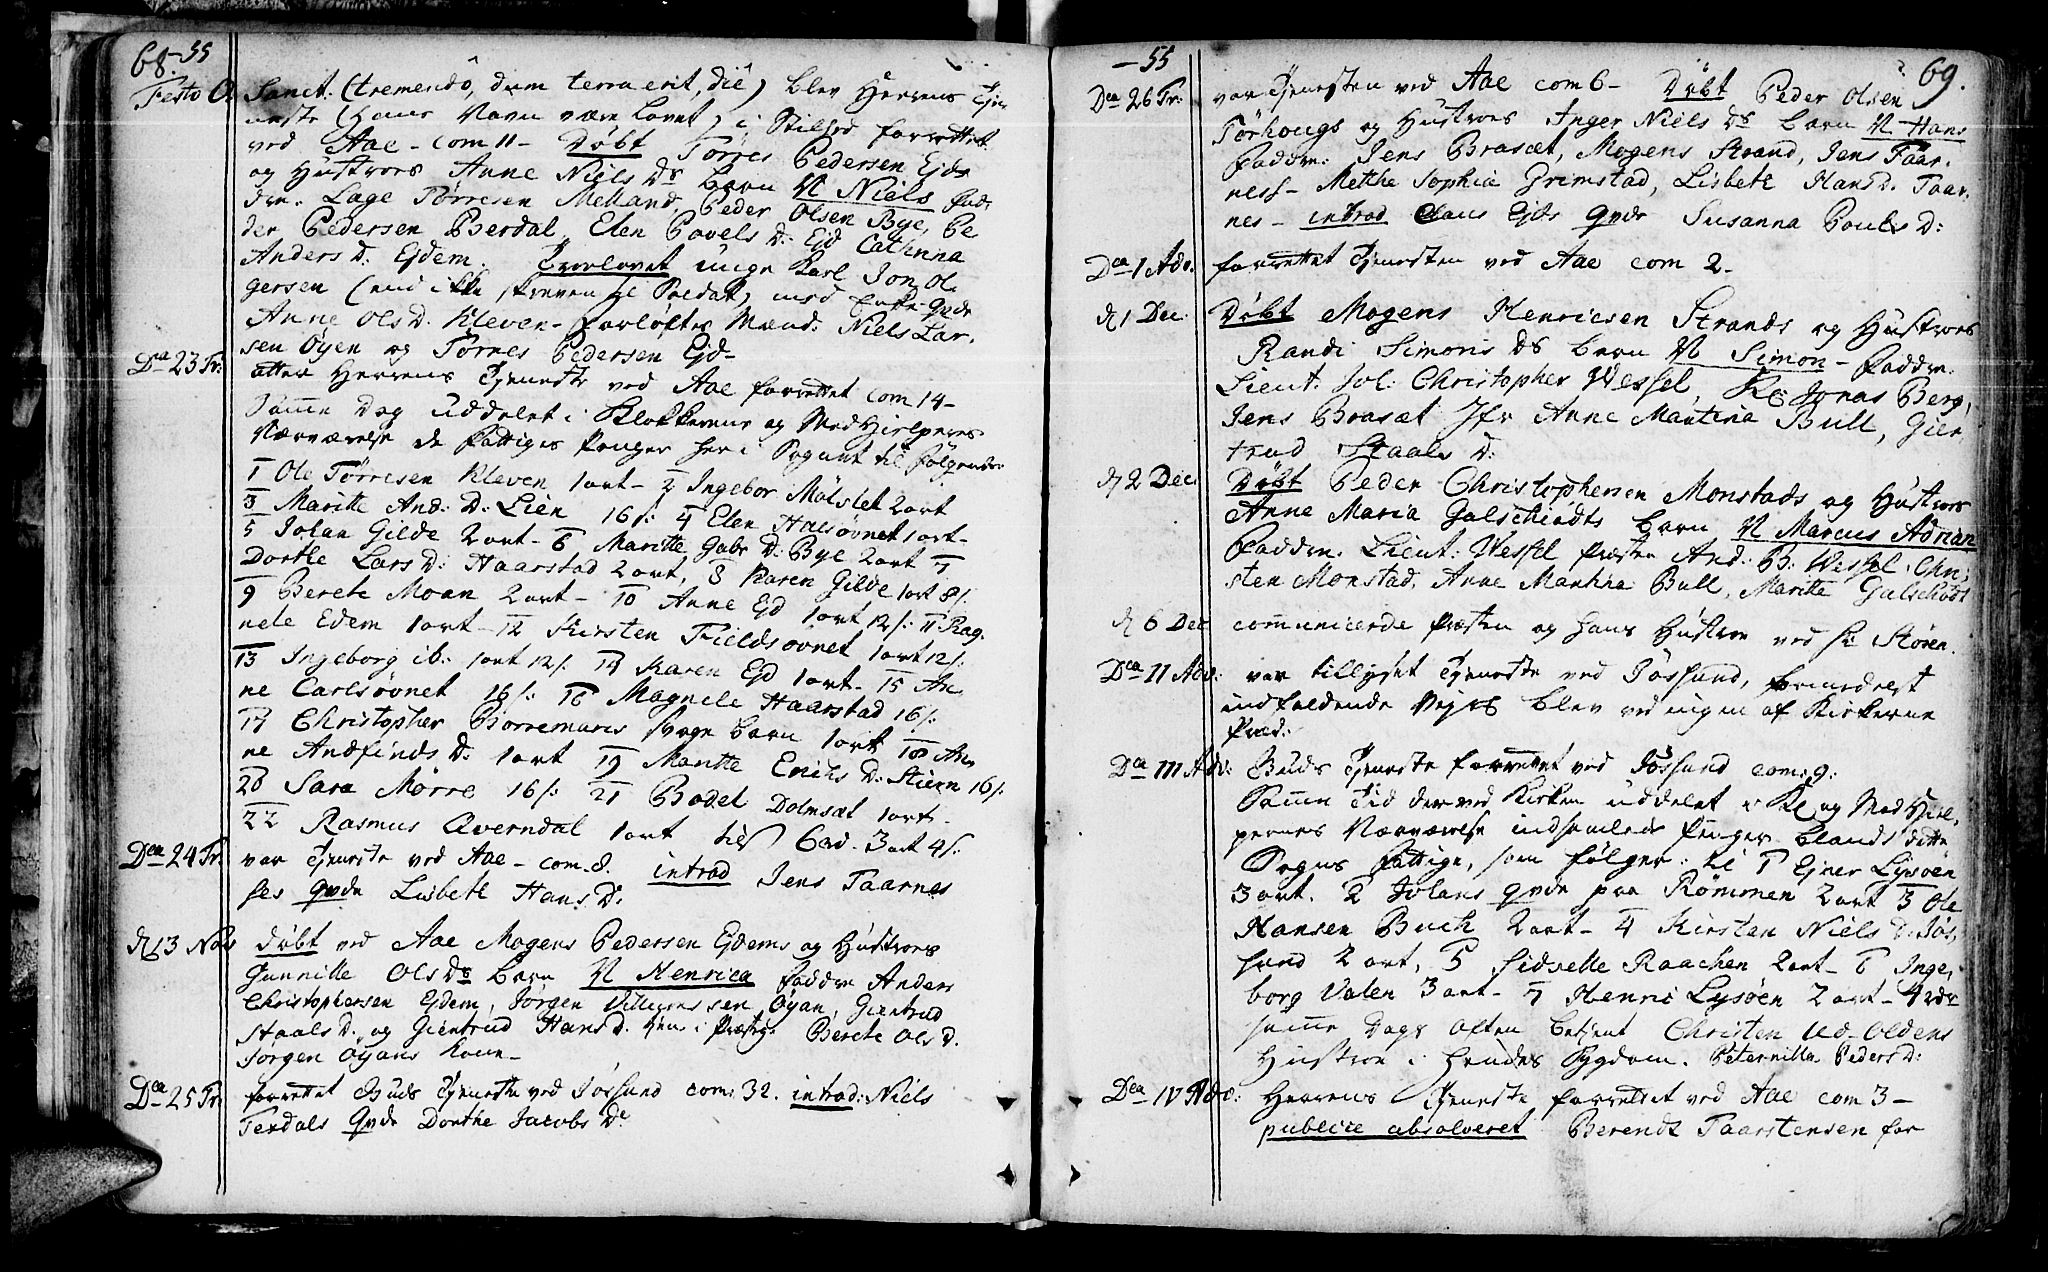 68. -55
Festo O. Sanct. (tremendô, dum terra erit, diê) blev Herrens Tjen
neste (hans Navn være lovet) i Stilhed forrettet
ved Aae - com 11 - Døbt Törres Pedersen Ejds
og Hustroes Anne Niels Ds barn N Niels fad
dre. Lage Törresen Melland, Peder Olsen Bye, Pe
der Pedersen Berdal, Elen Povels D: Ejd Cathrina
Anders D: Ejdem. Trovlovet unge Karl Jon Ol.
gersen (end ikke skreven til Soldat) med Qvde
Anne Ols D. Kleven - forløftes Mænd: Niels Lar.
sen Öyen og Törres Pedersen Ejd -
Dca 23 Tr: atter Herrens Tjeneste ved Aae forrettet com 14 -
Samme Dag uddelet i Klokkerens og Medhielpernes
Nærværelse de Fattiges Penger her i Sognet til følgende
1 Ole Törresen Kleven 1 ort - 2 Ingebor Mölslet 2 ort
3 Maritte And: D: Lien 16 s: 4 Elen Halsövnet 1 ort -
5 Johan Gilde 2 ort - 6 Maritte Gabr D: Bye 2 ort 7
Dorthe Lars D: Haarstad 2 ort, 8 Karen Gilde 1 ort 8 s:
9 Berete Moan 2 ort - 10 Anne Ejd 1 ort 12 s: 11 Rag.
nele Edem 1 ort - 12 Kirsten Fieldsövnet 1 ort 12 s:
13 Ingeborg ib: 1 ort 12 s: 14 Karen Ejd 1 ort - 15 An
ne Carlsövnet 16 s: 16 Magnele Haarstad 16 s:
17 Christopher Borremans svage barn 1 ort 18 An
ne Andfinds D: 1 ort 19 Maritte Erichs D: Stiern 16 s:
20 Sara Mörre 16 s: 21 Bodel Dolmsæt 1 ort -
22 Rasmus Overndal 1 ort til 6 rd. 3 ort 4 s:
Dca 24 Tr: var Tjeneste ved Aae - com. 8. introd Jens Taarnes
ses Qvde Lisbeth Hans D:
d 13 Nov døbt ved Aae Mogens Pedersen Ejdems og Hustroes
Gunnille Ols Ds barn N Henrica faddre Anders
Christophersen Ejdem, Jörgen Öyan, Giertrud
Staals D. og Giertrud Hans D. tien: i Præstg: Berete Ols D.
Jörgen Öyans Kone -
Dca 25 Tr: forrettet Guds Tjeneste ved Jössund com: 32. introd: Niels
Terdals Qvde Dorthe Jacobs D:
-55 69.
Dca 26 Tr: var Tjenesten ved Aae com 6 - Døbt Peder Olsen
Törhougs og Hustroes Inger Niels Ds barn N Hans
Faddre: Jens Brasæt, Mogens Strand, Jens Taar.
ness - Metthe Sophia Grimstad, Lisbeth Hans D. Taar.
nes - introd Claus Ejds Qvde Susanna Pouls D:
Dca 1 Adv. forrettet Tjenesten ved Aae com 2 -
d 1 Dec. Døbt Mogens Henricsen Strands og Hustroes
Randi Simons Ds barn N Simon - Faddre:
Lieut. Joh: Christopher Wessel, Jonas Berg,
Jens Brasæt Jfr Anne Martina Bull, Gier
trud Staals D:
d 2 Dec. Døbt Peder Christophersen Monstads og Hustroes
Anne Maria Galschiødts barn N Marcus Adrian
Faddre. Lieut: Wessel Præsten And: B: Wessel. Chri:
sten Monstad, Anne Martina Bull, Maritte Galschiødt
d 6 Dec communicerde Præsten og hans Hustroe ved Hr Stören.
Dca II Adv: var tillyset Tjeneste ved Jössund, formedelst
indfaldende Vejer blev ved ingen af Kirkerne
Præd:
Dca III Adv: Guds Tjeneste forrettet ved Jössund com: 9:
Samme Tid der ved Kirken uddelet i Kl og Med Hiel.
pernes Nærværelse indsamlede Penger blandt dette
Sogns Fattige, som følger: til 1 Ejner Lysöen
3 ort. 2 Johans Qvde paa Römmen 2 ort 3 Ole
Hansen Buch 2 ort - 4 Kirsten Niels D. Jös.
sund 2 ort, 5 Sidselle Raachen 2 ort - 6 Inge.
borg Valen 3 ort - 7 Henric Lysöen 2 ort - 4 rdr
samme Dags Aften betjent Christen Ud-Oldens
Hustroe i hendes Sygdom. Peternille Peders D:
Dca IV Adv: Herrens Tjeneste forrettet ved Aae com 3 -
publice absolveret Berendt Taarstensen for